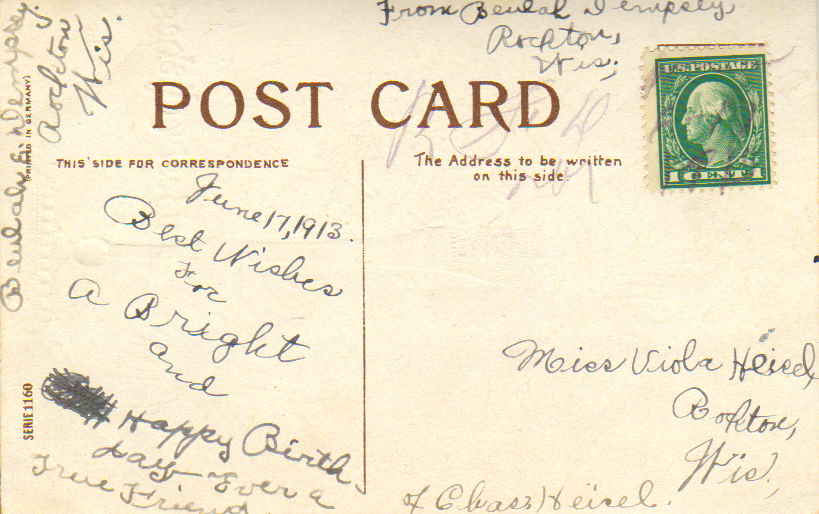 From Beulah Dempsey,
Rockton,
Wis,
Beulah E. Dempsey.
Rockton
Wis.
(PRINTED IN GERMANY)
POST CARD
U.S. POSTAGE
1 CENT 1
THIS SIDE FOR CORRESPONDENCE
The Address to be written
on this side
June 17, 1913.
Best Wishes
For
A Bright
and
Happy Birth
day Ever a
True Friend
SERIE 1160
Miss Viola Heisel,
Rockton,
Wis,
of Chass Heisel.